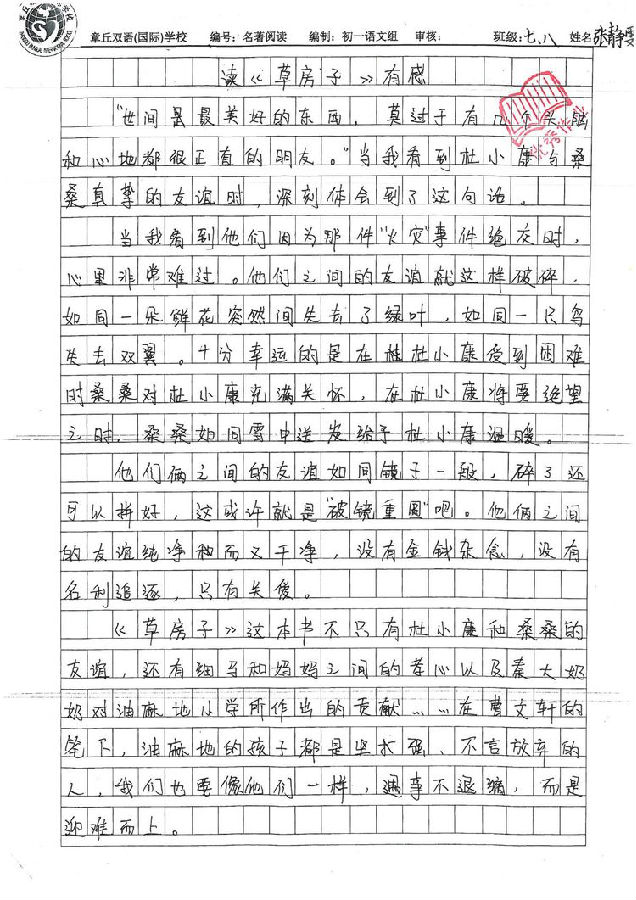 章丘双语(国际)学校 编号:名著阅读 编制:初一语文组 审核: 班级:七.八 姓名:张静雯
读《草房子》有感
"世间最最美好的东西,莫过于有几个头脑
和心地都很正直的朋友。"当我看到杜小康与桑
桑真挚的友谊时,深刻体会到了这句话。
当我看到他们因为那件"火灾"事件绝友时,
心里非常难过。他们之间的友谊就这样破碎,
如同一朵鲜花突然间失去了绿叶,如同一只鸟
失去双翼。十分幸运的是在杜小康受到困难
时桑桑对杜小康充满关怀,在杜小康将要绝望
之时,桑桑如同雪中送炭给予杜小康温暖。
他们俩之间的友谊如同镜子一般,碎了还
可以拼好,这或许就是"破镜重圆"吧。他俩之间
的友谊纯净而又干净,没有金钱杂念,没有
名利追逐,只有关爱。
《草房子》这本书不只有杜小康和桑桑的
友谊,还有细马和妈妈之间的孝心以及秦大奶
奶对油麻地小学所作出的贡献……在曹文轩的
笔下,油麻地的孩子都是坚强、不言放弃的
人,我们也要像他们一样,遇事不退缩,而是
迎难而上。
优秀作业